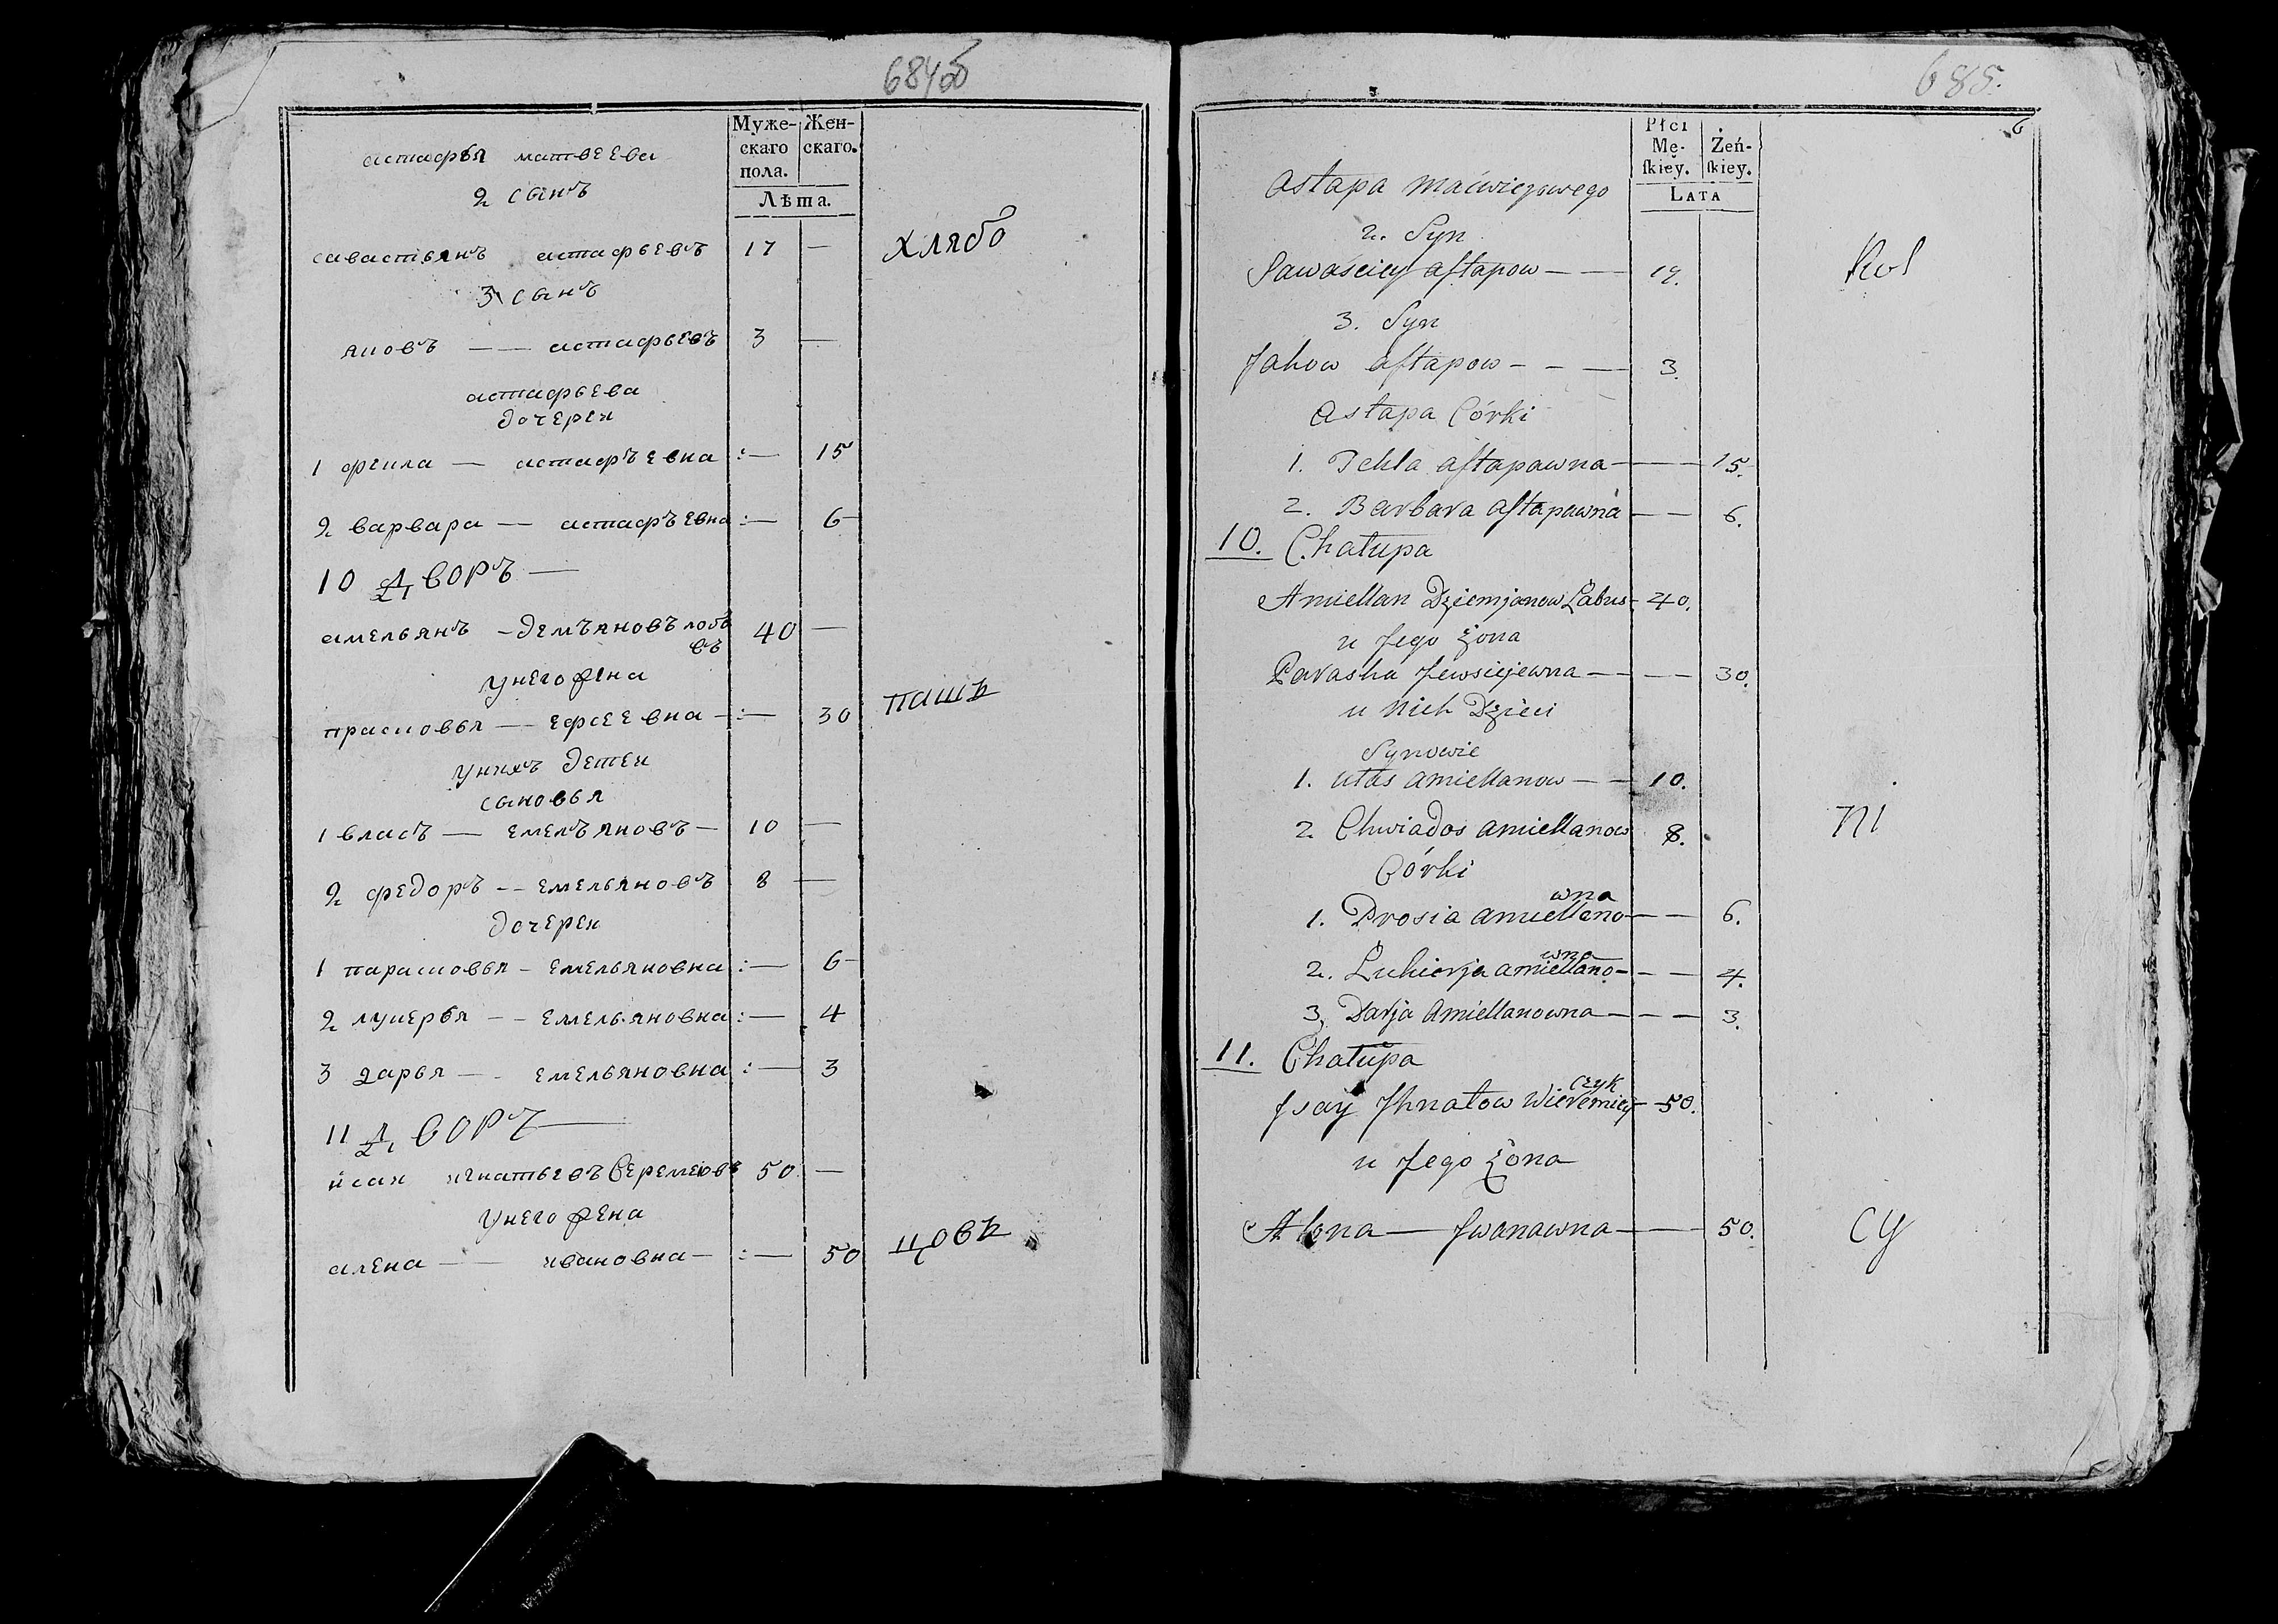 684об
Муже- Жен-
скаго скаго.
пола.
Лѣта.
астафья матвеева
2 сынъ
савастьянъ астафьевъ 17 —
хлябо
3 сынъ
яковъ — — астафьевъ 3 —
астафьева
дочереи
1 фекла — астафъевна :— 15
2 варвара — астафъевна :— 6
10 Дворъ —
амельянъ — демъяновъ лобо 40 —
въ
унего жена
прасковья — ефсеевна — :— 30
пашъ
унихъ детеи
сыновья
1 власъ — емелъяновъ — 10 —
2 федоръ — — емельяновъ 8 —
дочереи
1 парасковья — емельяновна :— 6
2 лукерья — — емельяновна :— 4
3 дарья — — емельяновна :— 3
11 Дворъ —
исаи игнатьевъ Веремеовъ 50 —
унего жена
алена — — ивановна — :— 50
цовъ
685.
6
Płci
Mę- Żeń-
ſkiey. ſkiey.
LATA
Astapa Maćwiejowego
2. Syn
Sawaściey Aſtapow — — 19.
Kol
3. Syn
Jakow Aſtapow — — — 3.
Astapa Córki
1. Tekla Aſtapawna — — 15.
2. Barbara Aſtapawna — — 6.
10. Chałupa
Amiellan Dziemjanow Łabus — 40.
u Jego żona
Paraska Jewsiejewna — — — 30.
u Nich Dzieci
Synowie
1. Ułas Amiellanow — — 10.
2 Chwiados Amiellanow 8.
ni
Córki
wna
1. Prosia Amiellano — — 6.
wna
2. Łukierja Amiellano — — — 4.
3. Darja Amiellanowna — — — 3.
11. Chałupa
czyk
Jsay Jhnatow Wieremiey — 50.
u Jego żona
Alona — Jwanawna — — 50.
cy